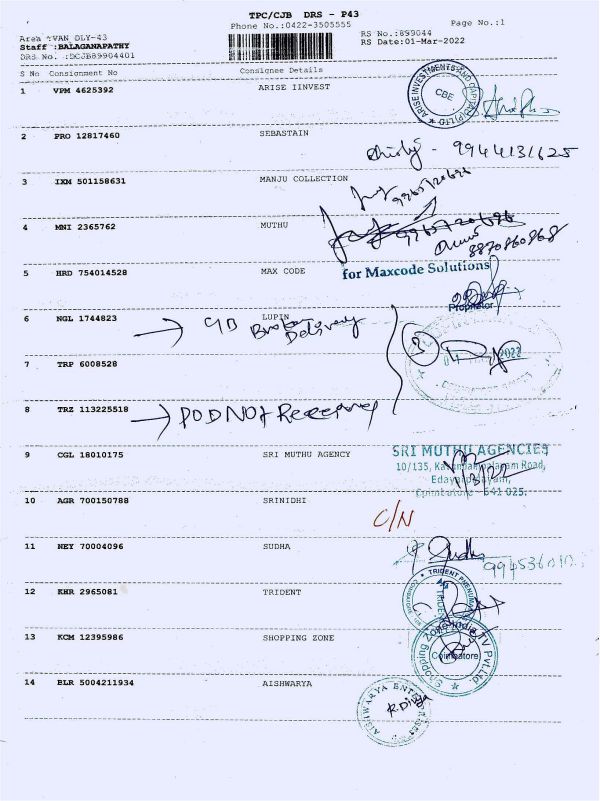 TPC/CJB DRS - P43
Phone No.:0422-3505555 Page No.:1
Area :VAN DLY-43 RS No.:899044
Staff :BALAGANAPATHY RS Date:01-Mar-2022
DRS No. :DCJB89904401
S No Consignment No Consignee Details
1 VPM 4625392 ARISE IINVEST
ARISE INVESTMENTS AND CAPITAL (P) LTD
CBE
2 PRO 12817460 SEBASTAIN
9944131625
3 IXM 501158631 MANJU COLLECTION
9965720696
4 MNI 2365762 MUTHU
9965720696
8870860868
5 HRD 754014528 MAX CODE
for Maxcode Solutions
Proprietor
6 NGL 1744823 LUPIN
C/B Broken
Delivery
3
2022
7 TRP 6008528
8 TRZ 113225518
POD NOT
9 CGL 18010175 SRI MUTHU AGENCY
SRI MUTHU AGENCIES
10/135, Road,
Coimbatore - 641 025.
1/3/22
10 AGR 700150788 SRINIDHI
C/N
11 NEY 70004096 SUDHA
Sudha
12 KHR 2965081 TRIDENT
TRIDENT
13 KCM 12395986 SHOPPING ZONE
Shopping Zone India TV Pvt.Ltd.
Coimbatore
14 BLR 5004211934 AISHWARYA
AISHWARYA ENTERPRISES
R.Divya